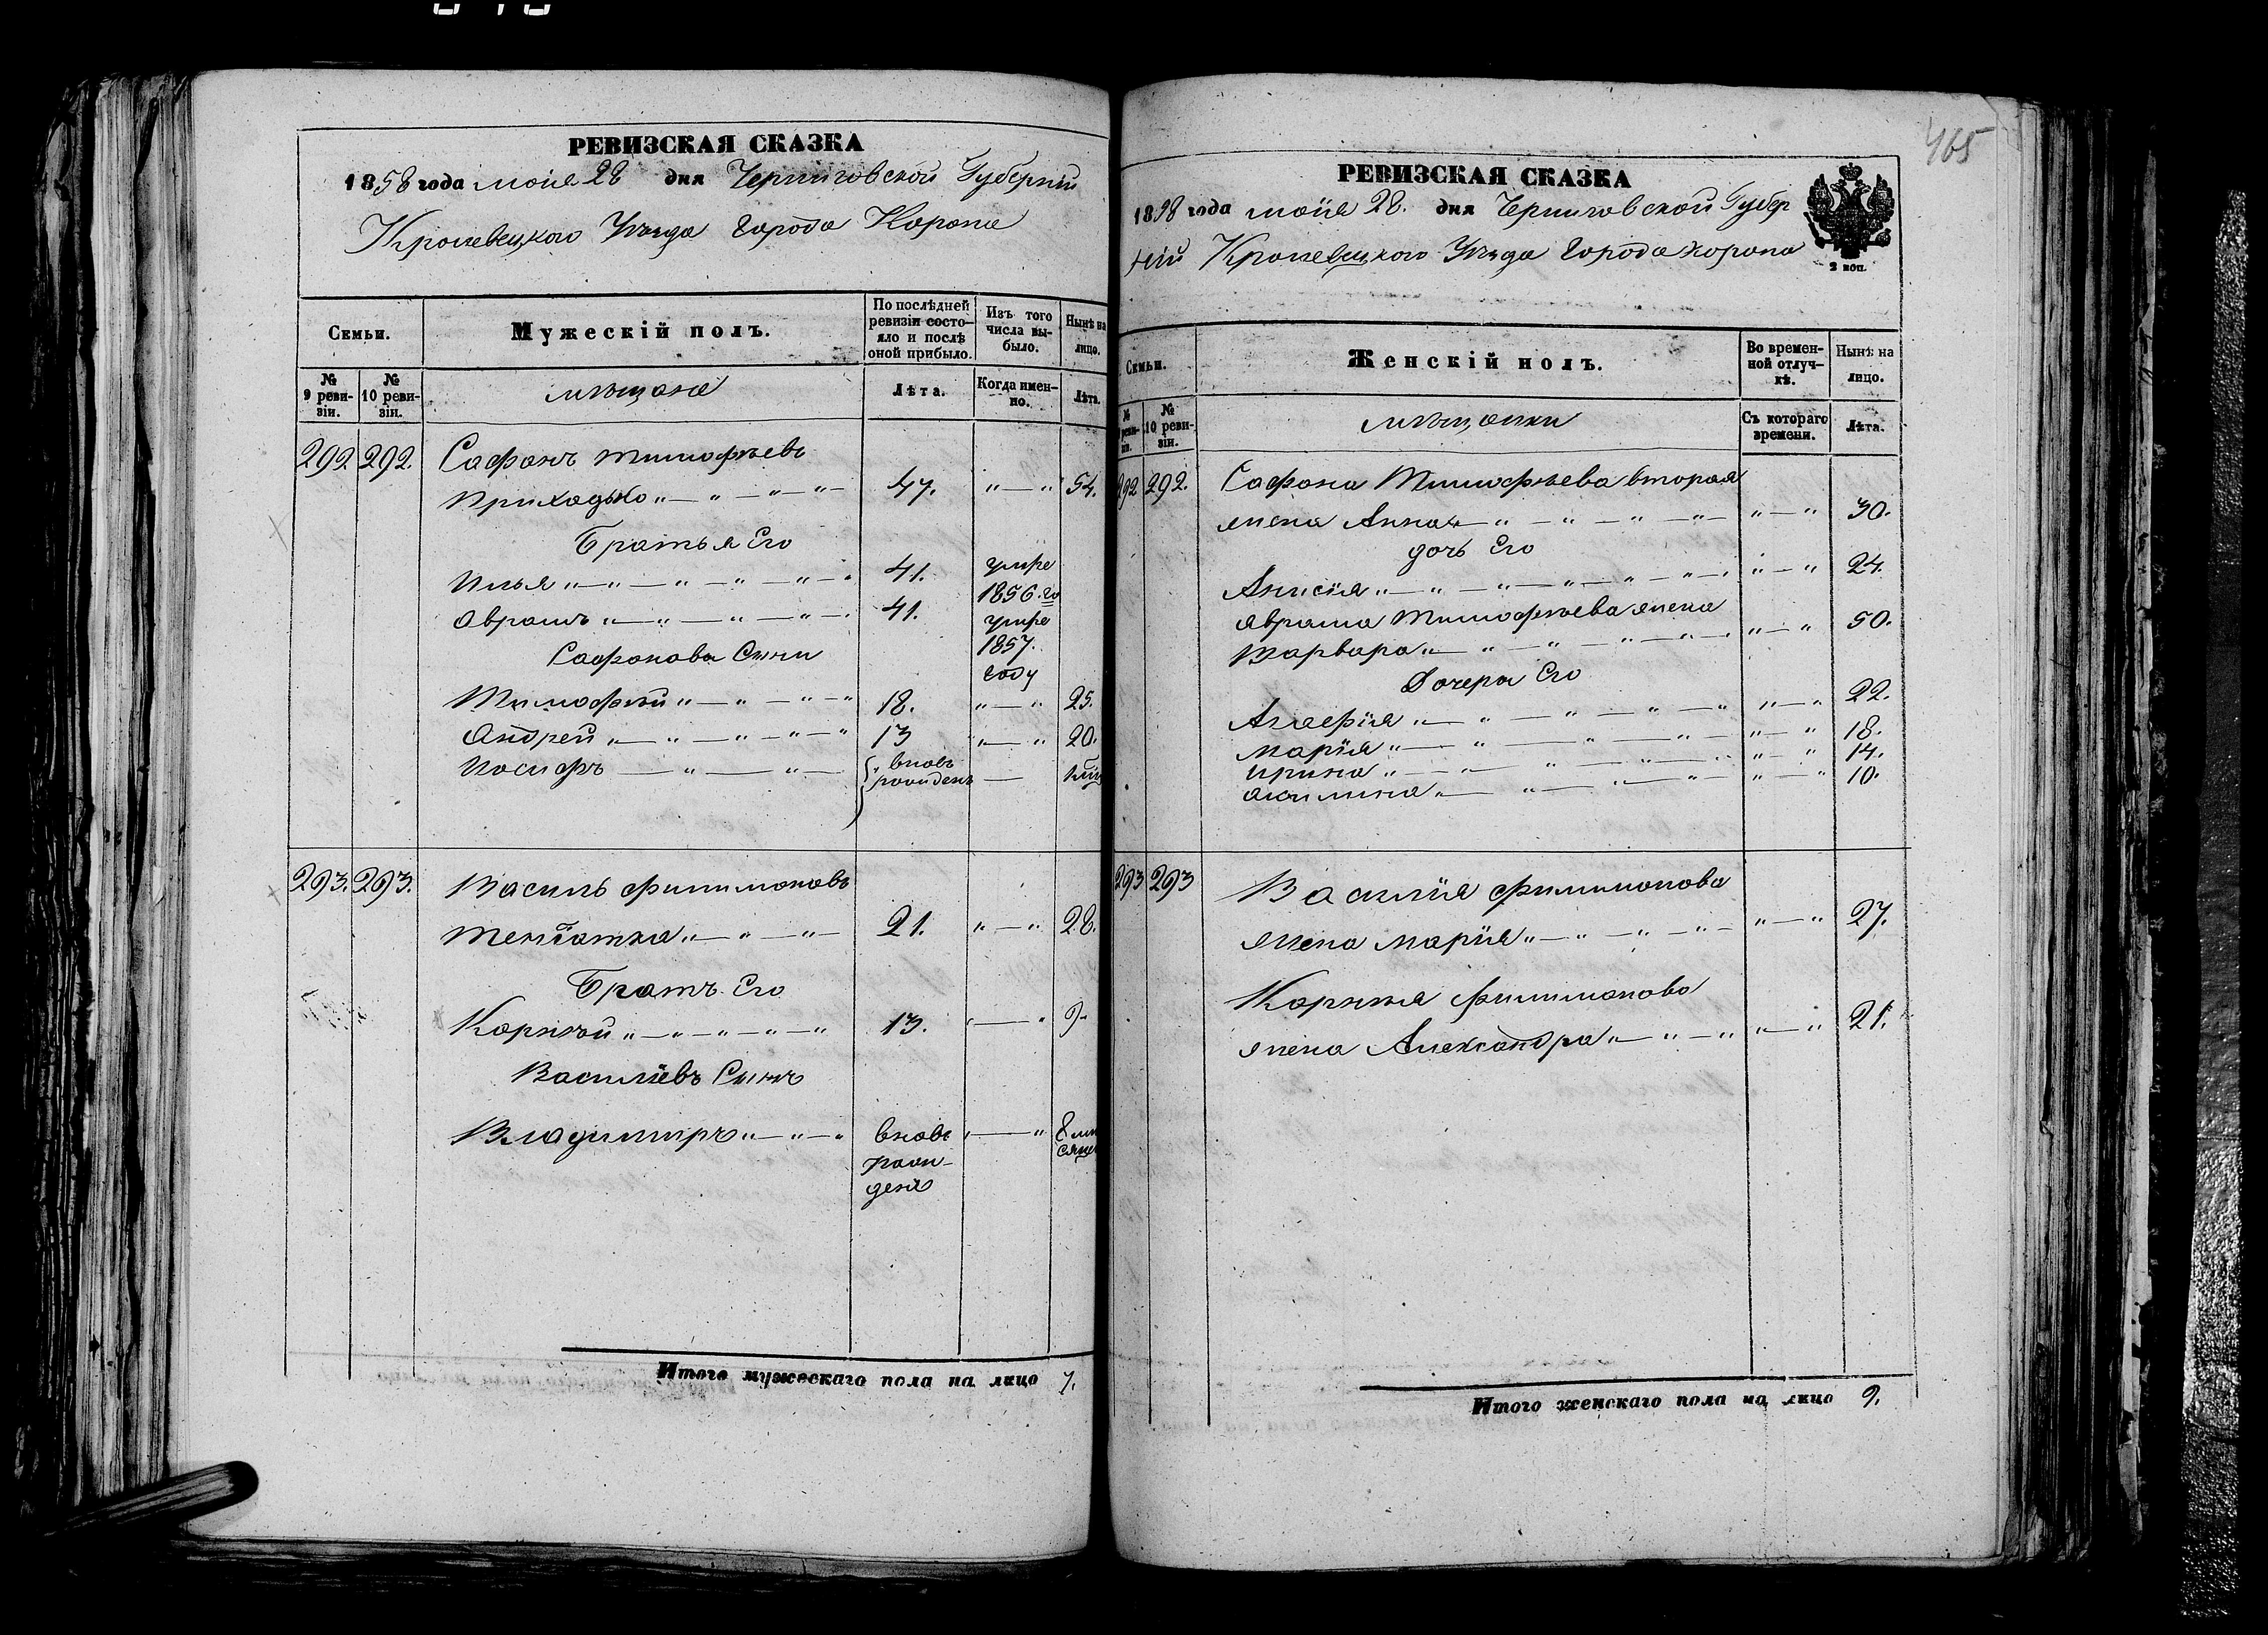 РЕВИЗСКАЯ СКАЗКА
1858 года маія 28 дня Черниговской Губерніи
Кролевецкого Уѣзда города Коропа
Семьи.
Мужескій полъ.
По послѣдней ревизіи состояло и послѣ оной прибыло.
Изъ того числа выбыло.
Нынѣ на лицо.
№ 9 ревизіи.
№ 10 ревизіи.
мѣщане
Лѣта.
Когда именно.
Лѣта.
292 292. Сафонъ Тимофѣевъ
Приходько „ — „ — „ — „ 47. „ — „ 54.
Братья Его
Илья „ — „ — „ — „ — „ — „ 41. умре 1856. го
Аврамъ „ — „ — „ — „ — 41. умре 1857. году
Сафонова Сыни
Тимофѣй „ — „ — „ — „ 18. „ — „ 25.
Андрей „ — „ — „ — „ — „ 13 „ — „ 20.
Иосифъ — „ — „ — вновь рожденъ —
293. 293. Василь Филимоновъ
„ — „ — „ — 21. „ — „ 28.
Братъ Его
Корнѣй „ — „ — „ — „ — „ 13. „ — „
Василіевъ Сынъ
Владимиръ „ — „ — „ вновь рожденъ „ — „ 8 мѣсяцев
Итого мужескаго пола на лицо 7.
465
РЕВИЗСКАЯ СКАЗКА
1858 года маія 28. дня Черниговской Губер
ніи Кролевецкого Уѣзда города коропа
2 коп.
Семьи.
Женскій полъ.
Во временной отлучкѣ.
Нынѣ на лицо.
№ 10 ревизіи.
мѣщанки
Съ котораго времени.
Лѣта.
292 292. Сафона Тимофѣева вторая
жена Анна — „ — „ — „ — „ — „ — „ 30.
дочь Его
Анисія „ — „ — „ — „ — „ — „ „ — „ 24.
Аврама Тимофѣева жена
Варвара „ — „ — „ — „ — „ — „ „ — „ 50.
Дочери Его
Агафія „ — „ — „ — „ — „ — „ „ — „ 22.
Марія „ — „ — „ — „ — „ — „ 18.
Ирина „ — „ — „ — „ — „ — „ 14.
Акилина „ — „ — „ — „ — „ — „ 10.
293 293 Василія Филимонова
жена Марія „ — „ — „ — „ — „ — „ 27.
Корнѣя Филимонова
жена Александра „ — „ — „ „ — „ 21.
Итого женскаго пола на лицо 9.